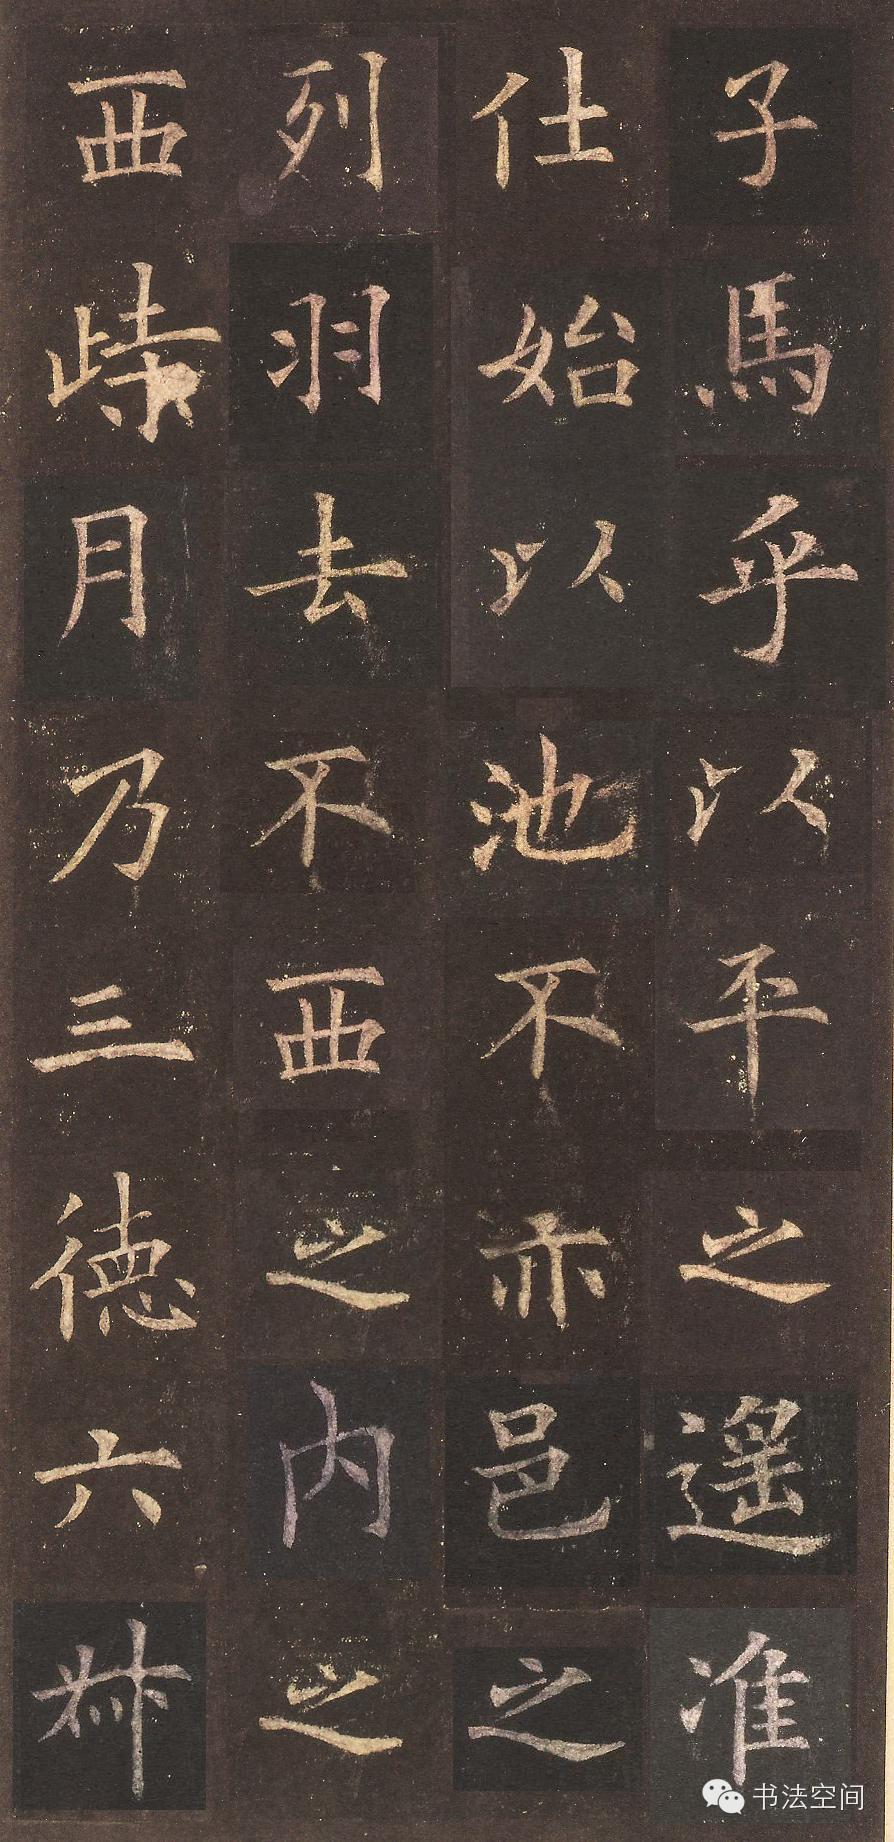 子馬乎以平之遥准
仕始以池不亦邑之
列羽去不西之内之
西月乃三德六
书法空间